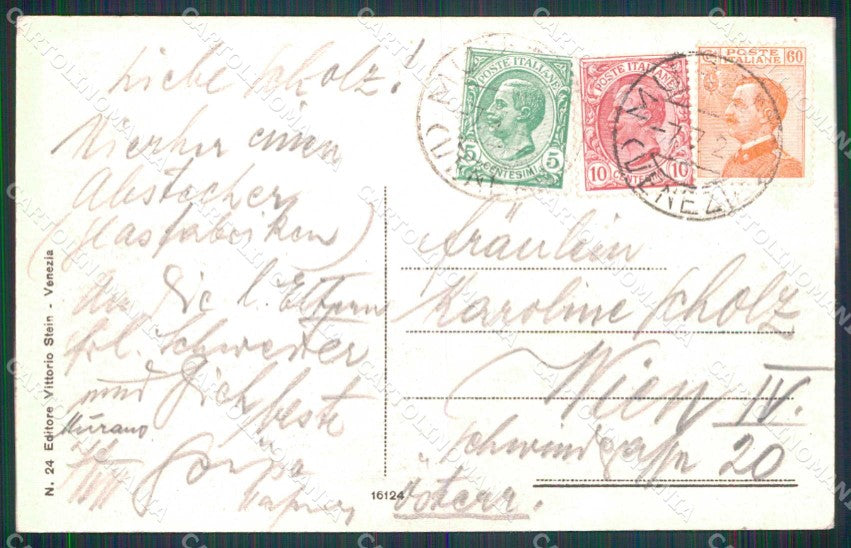 Liebe Scholz!
Hierher einen
Abstecher
(Glasfabriken)
An Sie l. Eltern
frl. Schwester
und Dich
Murano
N. 24 Editore Vittorio Stein - Venezia
16124
POSTE ITALIANE
5 5
CENTESIMI
POSTE ITALIANE
10 10
POSTE
ITALIANE 60
Fräulein
Karoline Scholz
Wien IV.
Schwindgasse 20
Österr.